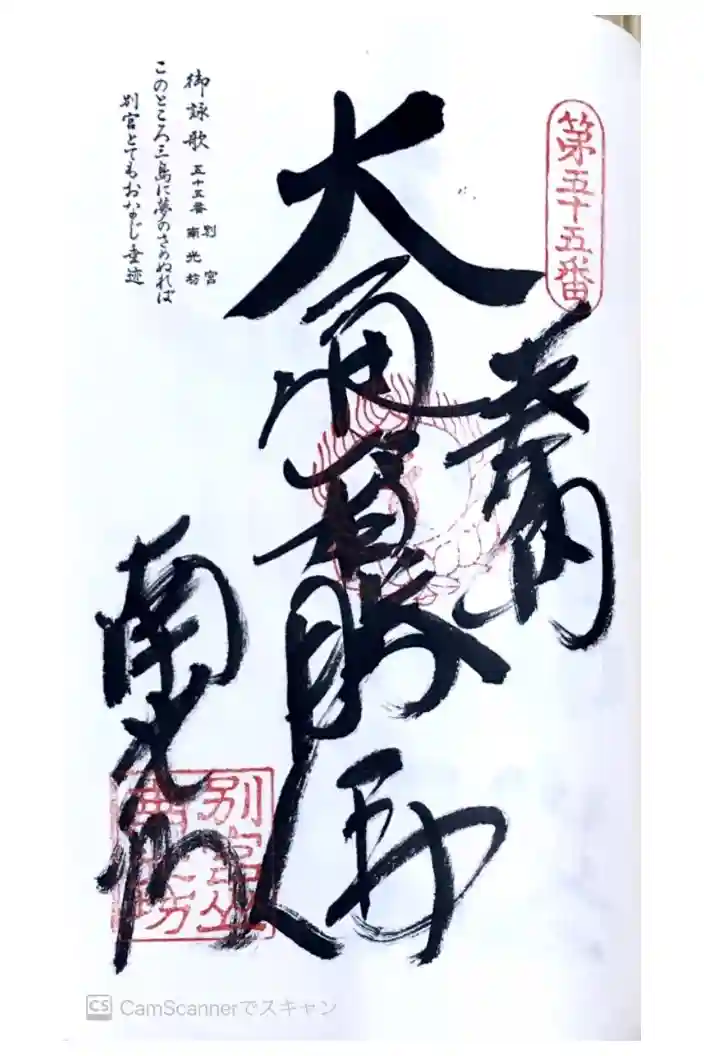 第五十五番
奉納
大通智勝佛
南光坊
別宮山
南光坊
御詠歌 五十五番 別宮 南光坊
このところ三島に夢のさめぬれば
別宮とてもおなじ垂迹
CS CamScannerでスキャン